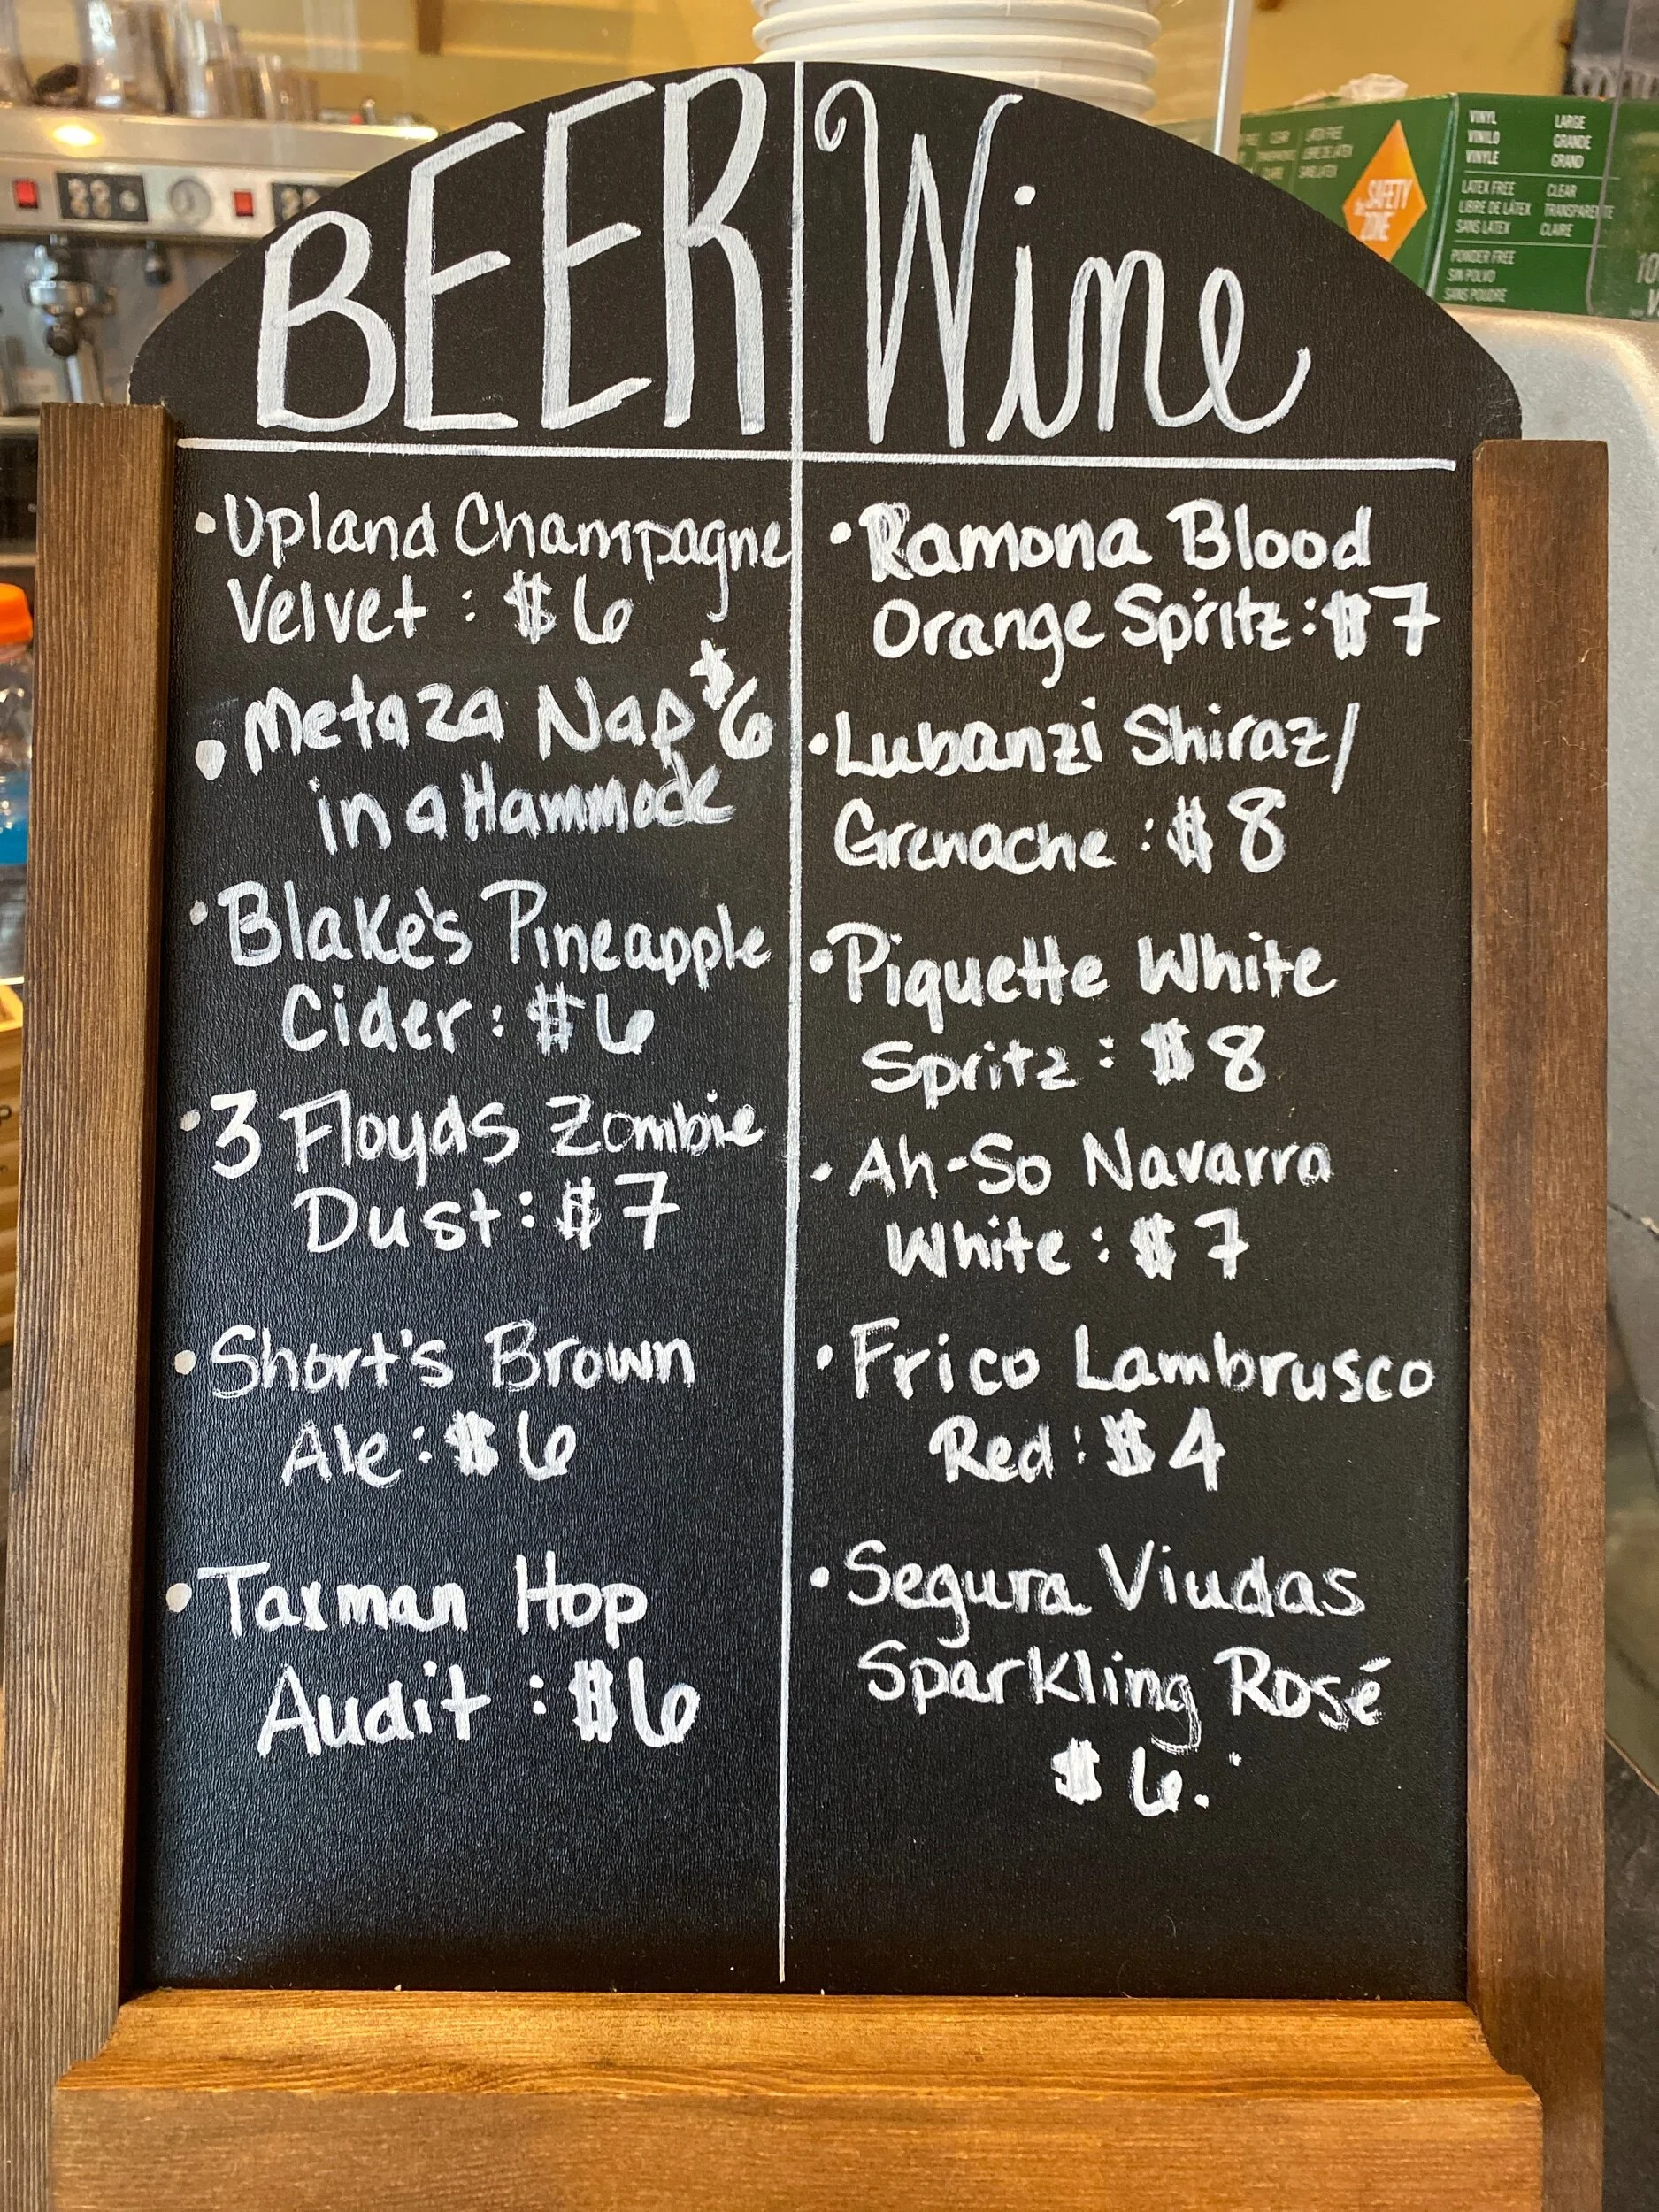 BEER
• Upland Champagne
Velvet : $6
• Metaza Nap $6
in a Hammock
• Blake's Pineapple
Cider : $6
• 3 Floyds Zombie
Dust : $7
• Short's Brown
Ale : $6
• Taxman Hop
Audit : $6
Wine
• Ramona Blood
Orange Spritz : $7
• Lubanzi Shiraz/
Grenache : $8
• Piquette White
Spritz : $8
• Ah-So Navarra
White : $7
• Frico Lambrusco
Red : $4
• Segura Viudas
Sparkling Rosé
$6.
SAFETY
ZONE
VINYL
VINILO
VINYLE
LARGE
GRANDE
GRAND
LATEX FREE
LIBRE DE LÁTEX
SANS LATEX
CLEAR
TRANSPARENTE
CLAIRE
POWDER FREE
SIN POLVO
SANS POUDRE